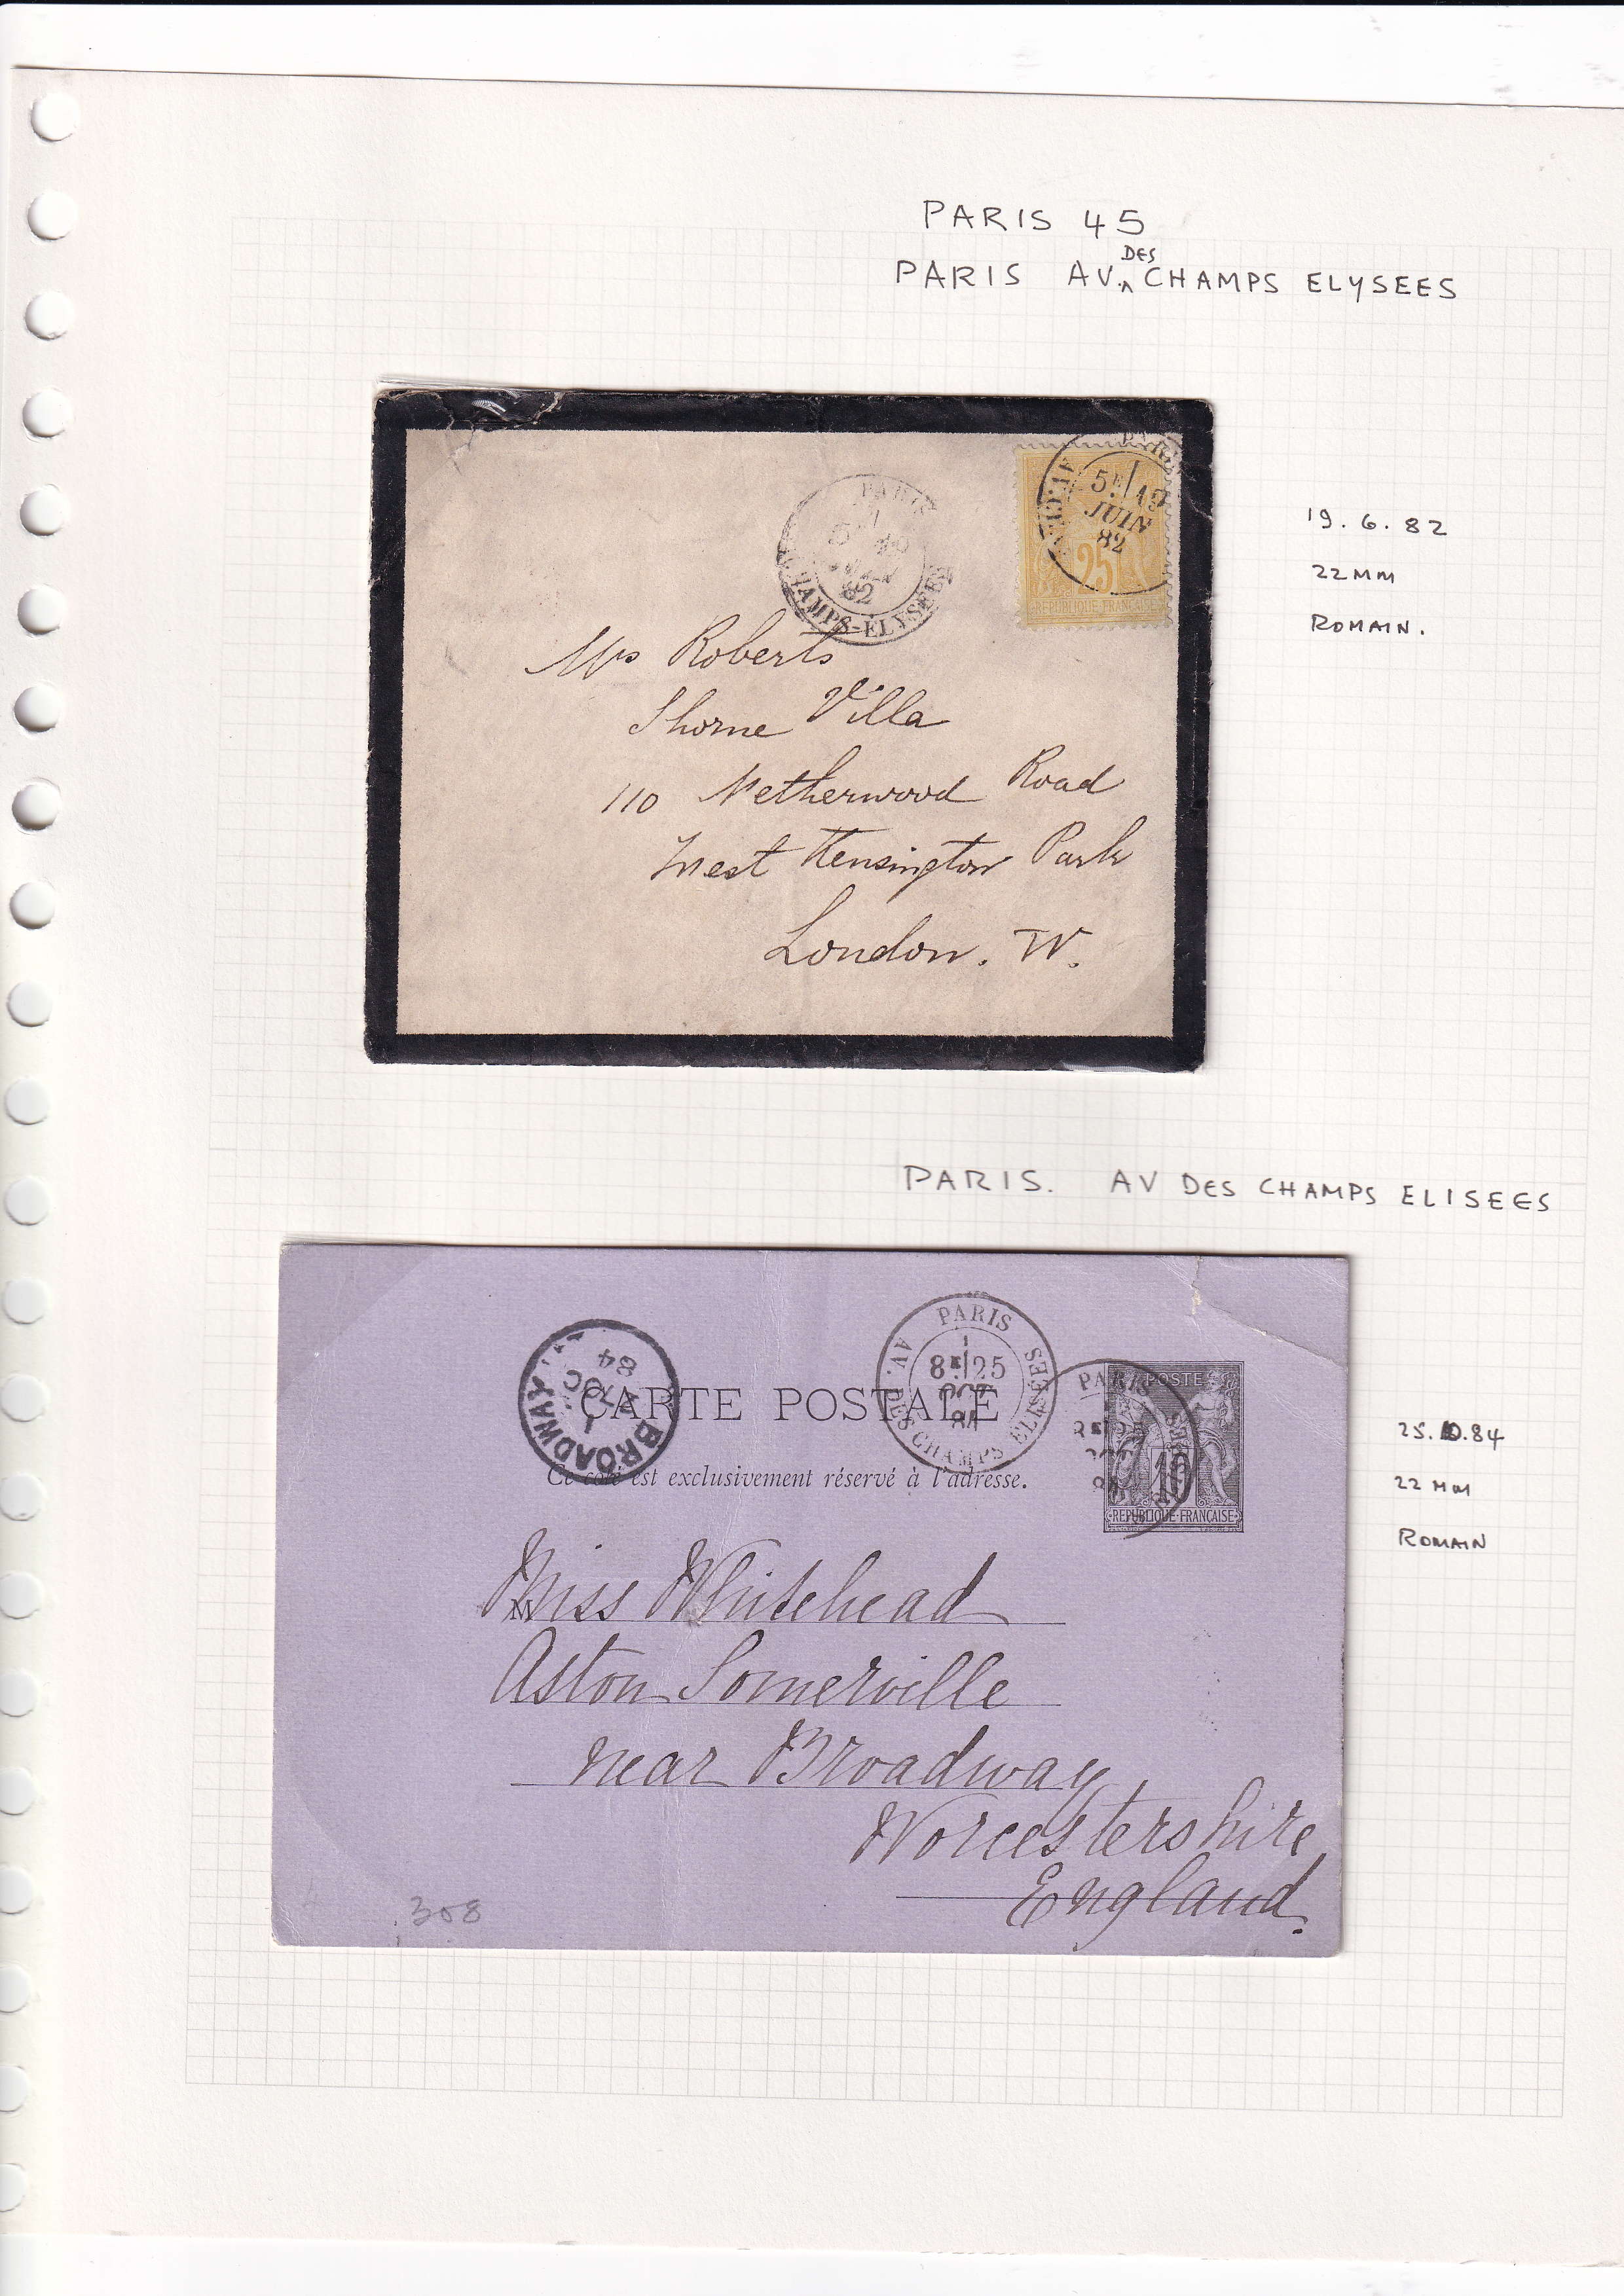 PARIS 45
PARIS AV. DES CHAMPS ELYSEES
PARIS
5E 19
JUIN
82
25
REPUBLIQUE FRANÇAISE
PARIS
82
CHAMPS-ÉLYSÉES
19.6.82
22MM
ROMAIN.
Mrs Roberts
Thorne Villa
110 Netherwood Road
West Kensington Park
London. W.
PARIS. AV DES CHAMPS ELISEES
PARIS
AV. DES CHAMPS ELISÉES
8E 25
OCT
84
BROADWAY
OC
84
CARTE POSTALE
Ce coté est exclusivement réservé à l'adresse.
POSTES
PARIS
10
REPUBLIQUE FRANÇAISE
25.10.84
22 MM
ROMAIN
M
Miss Whitehead
Aston Somerville
near Broadway
Worcestershire
England.
308